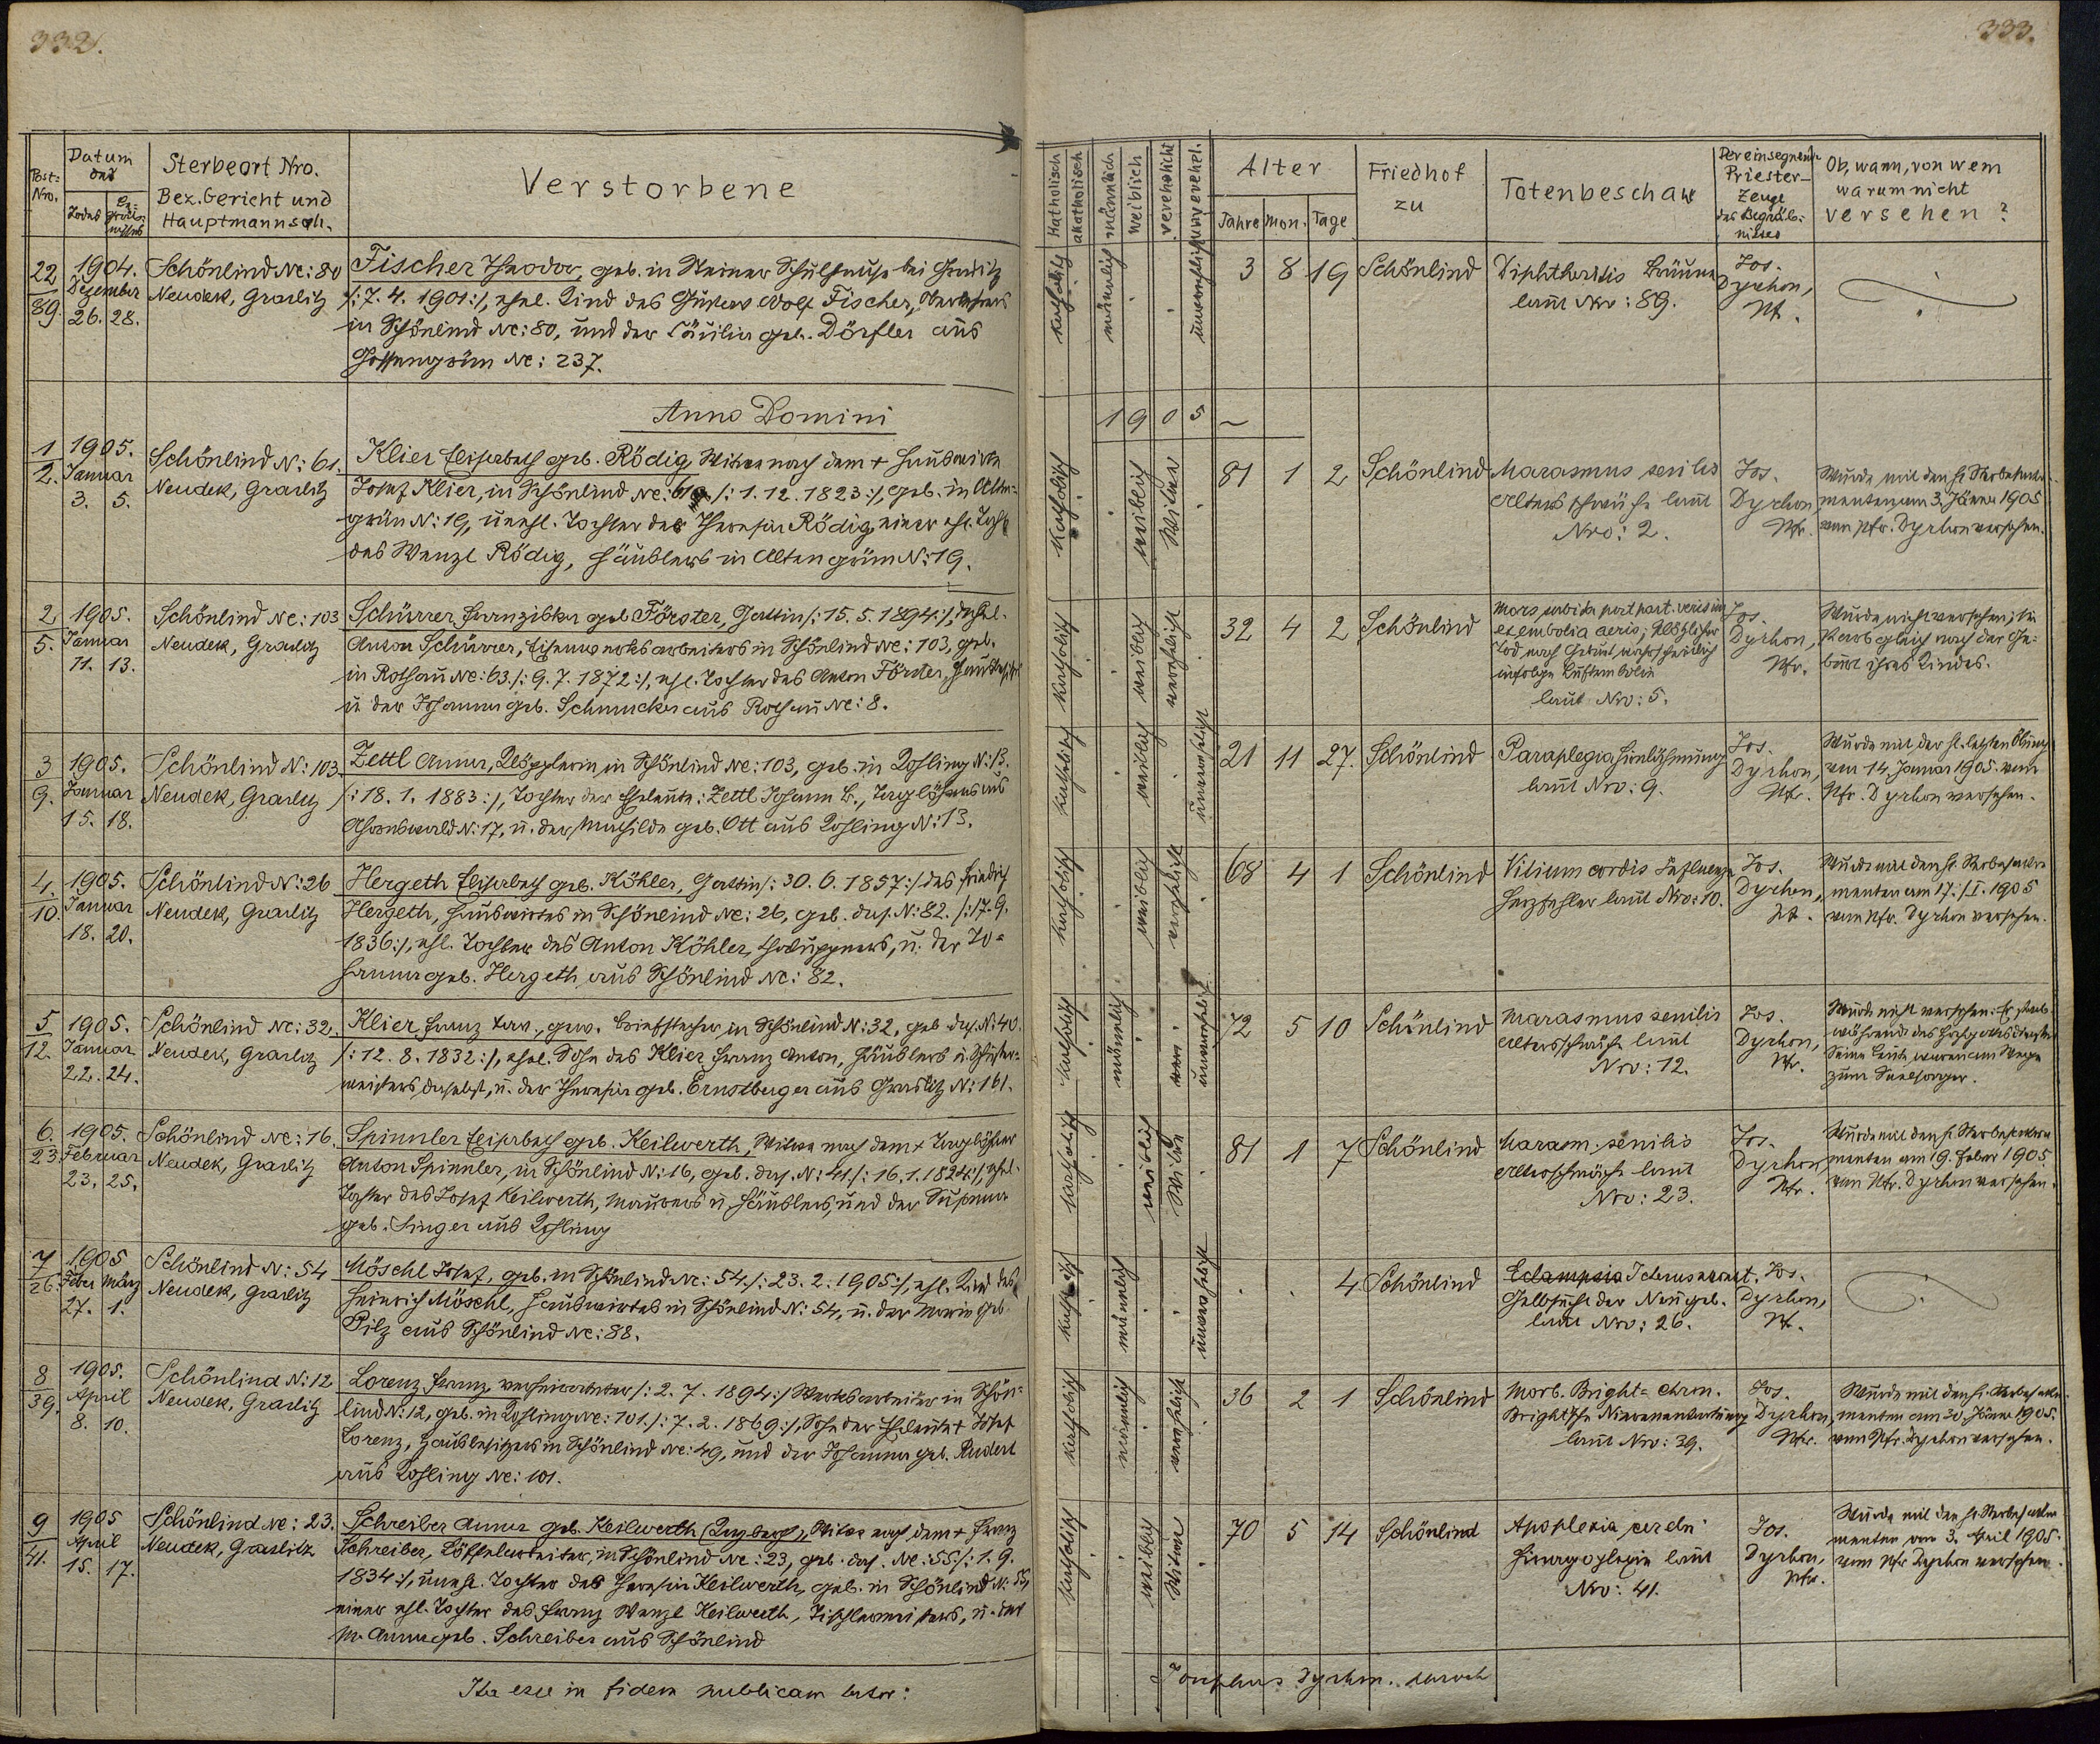 332.
Post-Nro.
Datum des
Todes
Be-gräb-nisses
Sterbeort Nro.
Bez. Gericht und
Hauptmannsch.
Verstorbene
22
89.
1904.
Dezember
26. 28.
Schönlind Nc: 80
Neudek, Graslitz
Fischer Theodor, geb. in Steiner Schulhause bei
/: 7. 4. 1901 :/, ehel. Kind des Gustav Adolf Fischer,
in Schönlind Nc: 80, und der Cäcilia geb. Dörfler aus
Gossengrün Nc: 237.
Anno Domini
1
2.
1905.
Januar
3. 5.
Schönlind N: 61.
Neudek, Graslitz
Klier Elisabeth geb. Rödig, Witwe nach dem + Hauswirte
Josef Klier, in Schönlind Nc: 61 /: 1. 12. 1823 :/, geb. in Alten-
grün N: 19, unehl. Tochter der Theresia Rödig, einer ehl. Tocht
des Wenzl Rödig, Häuslers in Altengrün N: 19.
2
5.
1905.
Januar
11. 13.
Schönlind Nc: 103
Neudek, Graslitz
Schürrer Franziska geb. Förster, Gattin /: 15. 5. 1894 :/, des
Anton Schürrer, Eisenwerksarbeiters in Schönlind Nc: 103, geb.
in Rothau Nc: 63 /: 9. 7. 1872 :/, ehl. Tochter des Anton Förster,
u der Johanna geb. Schmucker aus Rothau Nc: 8.
3
9.
1905.
Januar
15. 18.
Schönlind N: 103.
Neudek, Graslitz
Zettl Anna, Klöpplerin in Schönlind Nc: 103, geb. in Kohling N: 13.
/: 18. 1. 1883 :/, Tochter der Eheleute: Zettl Johann B., Taglöhners aus
Ahornswald N: 17, u. der Mathilde geb. Ott aus Kohling N: 13.
4.
10.
1905.
Januar
18. 20.
Schönlind N: 26
Neudek, Graslitz
Hergeth Elisabeth geb. Köhler, Gattin /: 30. 6. 1857 :/ des Friedrich
Hergeth, Hauswirtes in Schönlind Nc: 26, geb. das. N: 82. /: 17. 9.
1836 :/, ehl. Tochter des Anton Köhler, Chaluppners, u. der Jo-
hanna geb. Hergeth aus Schönlind Nc: 82.
5
12.
1905.
Januar
22. 24.
Schönlind Nc: 32.
Neudek, Graslitz
Klier Franz gew. in Schönlind N: 32, geb. das. N: 40.
/: 12. 8. 1832 :/, ehel. Sohn des Klier Franz Anton, Häuslers u. Schuster-
meisters daselbst, u. der Theresia geb. Ernstberger aus Graslitz N: 161.
6.
23.
1905.
Februar
23. 25.
Schönlind Nc: 16.
Neudek, Graslitz
Spinnler Elisabeth geb. Keilwerth, Witwe nach dem + Taglöhner
Anton Spinnler, in Schönlind N: 16, geb. das. N: 41 /: 16. 1. 1824 :/, ehel.
Tochter des Josef Keilwerth, Maurers u. Häuslers, und der Susanna
geb. Singer aus Kohling
7
26.
1905
Feber März
27. 1.
Schönlind N: 54
Neudek, Graslitz
Möschl Josef, geb. in Schönlind Nc: 54 /: 23. 2. 1905 :/, ehl. Kind des
Heinrich Möschl, Hauswirtes in Schönlind N: 54, u. der Maria geb.
Pilz aus Schönlind Nc: 88.
8
39.
1905.
April
8. 10.
Schönlind N: 12
Neudek, Graslitz
Lorenz Franz, verheirateter /: 2. 7. 1894 :/ Werksarbeiter in Schön-
lind N: 12, geb. in Kohling Nc: 101 /: 7. 2. 1869 :/, Sohn der Eheleute + Josef
Lorenz, Hausbesitzers in Schönlind Nc: 49, und der Johanna geb. Rudert
aus Kohling Nc: 101.
9
41.
1905
April
15. 17.
Schönlind Nc: 23.
Neudek, Graslitz
Schreiber Anna geb. Keilwerth, Witwe nach dem + Franz
Schreiber, Löffelarbeiter, in Schönlind Nc: 23, geb. das. Nc: 55 /: 1. 9.
1834 :/, unehl. Tochter der Theresia Keilwerth, geb. in Schönlind N: 55,
einer ehl. Tochter des Franz Wenzl Keilwerth, Tischlermeisters, u. der
M. Anna geb. Schreiber aus Schönlind
Ita esse in fidem publicam testor:
333.
Katholisch
akatholisch
männlich
weiblich
verehelicht
unverehel.
Alter
Jahre Mon. Tage
Friedhof
zu
Totenbeschau
Der einsegnende
Priester-
Zeuge
des Begräb-
nisses
Ob, wann, von wem
warum nicht
versehen?
katholisch männlich unverehelicht
3 8 19 Schönlind
Diphtheritis Bräune
laut Nro: 89.
Jos.
Dyrhon,
Pf.
1905
katholisch weiblich Witwe
81 1 2 Schönlind
Marasmus senilis
Altersschwäche laut
Nro: 2.
Jos.
Dyrhon,
Pfr.
Wurde mit den hl. Sterbesakra-
menten am 3. Jänner 1905
vom Pfr. Dyrhon versehen.
katholisch weiblich verehelicht
32 4 2 Schönlind
Mors subita post part. veris im
ex embolia aeris; Plötzlicher
Tod nach Geburt wahrscheinlich
infolge Luftembolie
laut Nro: 5.
Jos.
Dyrhon,
Pfr.
Wurde nicht versehen; sie
starb gleich nach der Ge-
burt ihres Kindes.
katholisch weiblich unverehelicht
21 11 27. Schönlind
Paraplegia Hirnlähmung
laut Nro: 9.
Jos.
Dyrhon,
Pfr.
Wurde mit der hl. letzten Ölung
am 14. Januar 1905 vom
Pfr. Dyrhon versehen.
katholisch weiblich verehelicht
68 4 1 Schönlind
Vitium cordis Influenza
Herzfehler laut Nro: 10.
Jos.
Dyrhon,
Pf.
Wurde mit den hl. Sterbesakra-
menten am 17./I. 1905
vom Pfr. Dyrhon versehen.
katholisch männlich unverehelicht
72 5 10 Schönlind
Marasmus senilis
Altersschwäche laut
Nro: 12.
Jos.
Dyrhon,
Pfr.
Wurde nicht versehen. Er starb
während des
Seine Leute waren am Wege
zum Seelsorger.
katholisch weiblich Witwe
81 1 7 Schönlind
Marasm. senilis
Altersschwäche laut
Nro: 23.
Jos.
Dyrhon,
Pfr.
Wurde mit den hl. Sterbesakra-
menten am 19. Feber 1905
vom Pfr. Dyrhon versehen.
katholisch männlich unverehelicht
4 Schönlind
Eclampsia Icterus neonat.
Gelbsucht der Neugeb.
laut Nro: 26.
Jos.
Dyrhon,
Pf.
katholisch männlich verehelicht
36 2 1 Schönlind
Morb. Bright- chron.
Bright'sche Nierenentartung
laut Nro: 39.
Jos.
Dyrhon,
Pfr.
Wurde mit den hl. Sterbesakra-
menten am 30. Jänner 1905.
vom Pfr. Dyrhon versehen.
katholisch weiblich Witwe
70 5 14 Schönlind
Apoplexia cerebri
Hirnapoplexie laut
Nro: 41.
Jos.
Dyrhon,
Pfr.
Wurde mit den hl. Sterbesakra-
menten am 3. April 1905.
vom Pfr. Dyrhon versehen.
Josephus Dyrhon, paroch